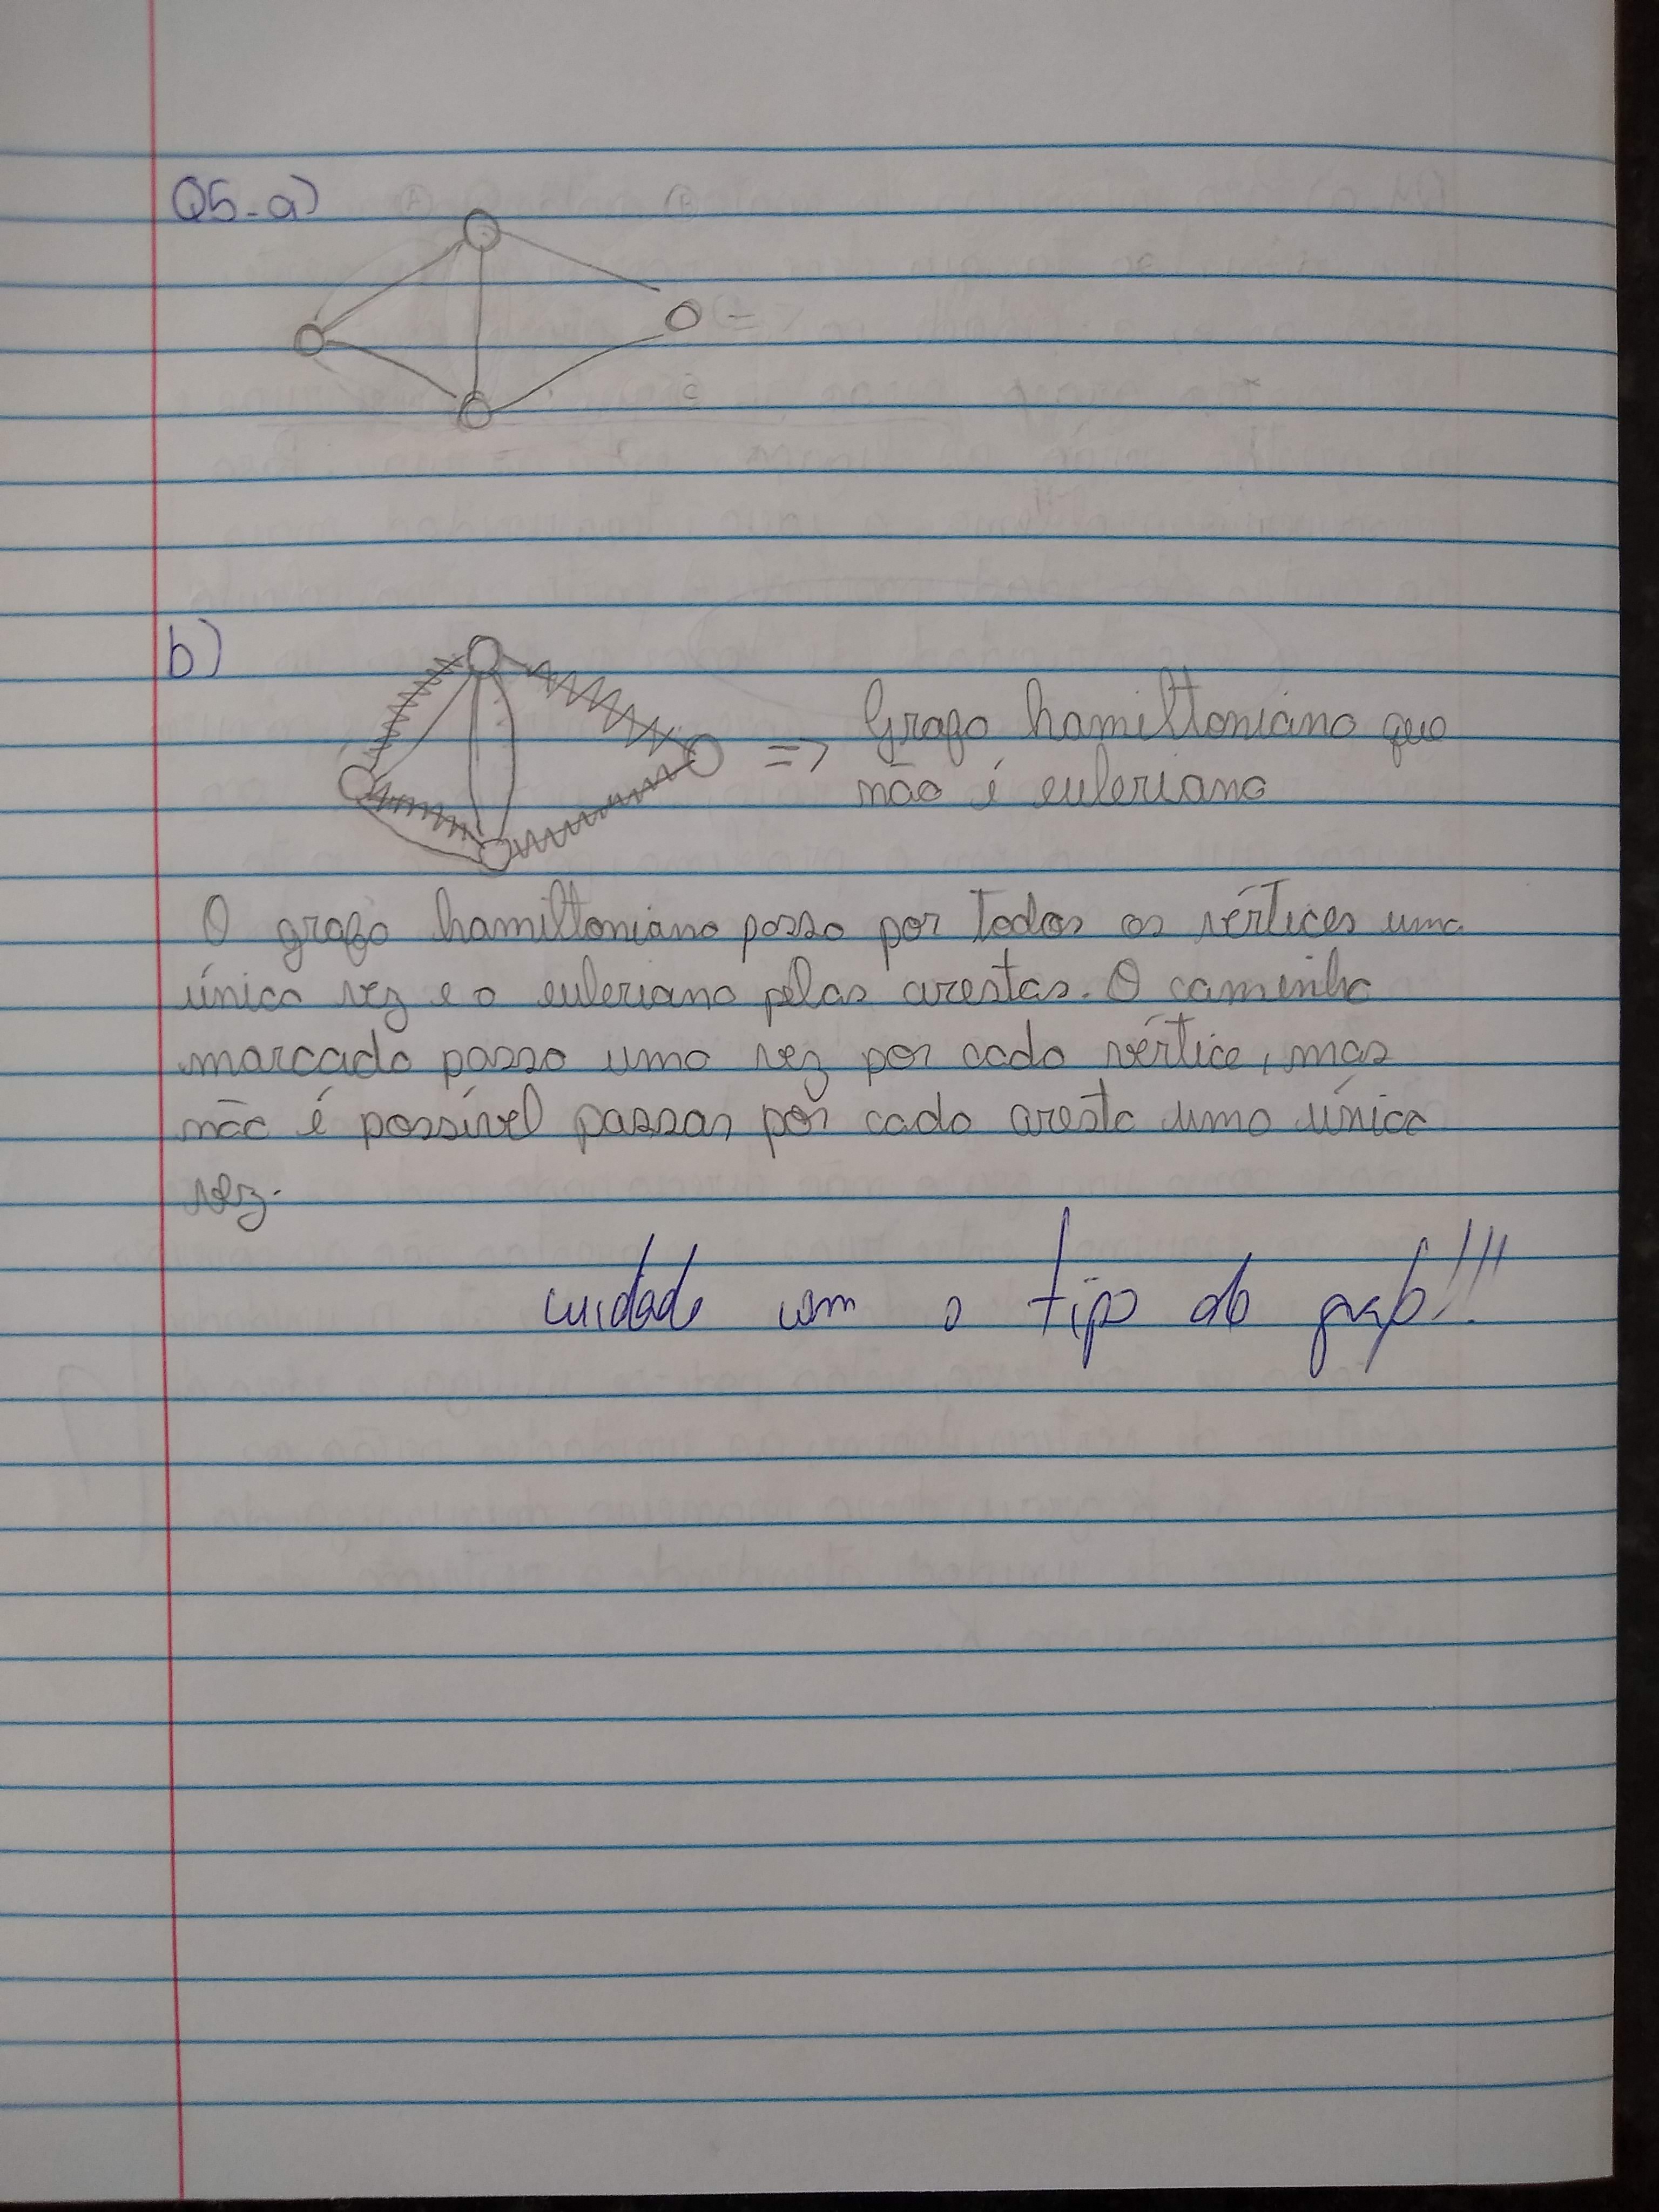 Q5-a)
b)
=> Grafo hamiltoniano que
não é euleriano
O grafo hamiltoniano passa por todos os vértices uma
única vez e o euleriano pelas arestas. O caminho
marcado passa uma vez por cada vértice, mas
não é possível passar por cada aresta uma única
vez.
cuidado com o tipo do grafo!!!